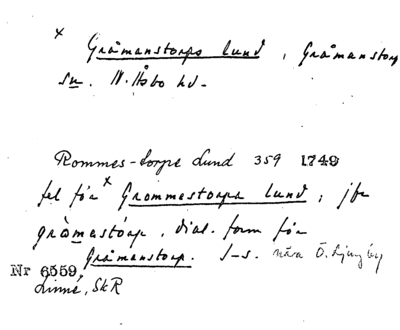 x
Gråmanstorps lund, Gråmanstorp
sn. N. Åsbo hd.
Rommes-torps Lund 359 1749
fel för x Grommestorps lund; jfr
gråmastårp, dial. form för
Gråmanstorp. I-s. nära Ö. Ljungby
Nr 6559.
Linné, SkR